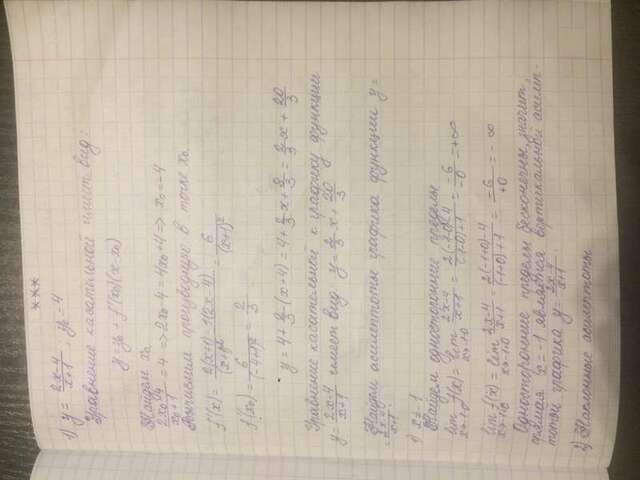 ***
1) y = (2x-4)/(x+1), y₀ = 4
Уравнение касательной имеет вид:
y = y₀ + f'(x₀)(x-x₀)
Найдем x₀
(2x₀-4)/(x₀+1) = 4 => 2x₀-4 = 4x₀+4 => x₀ = -4
Вычислим производную в точке x₀
f'(x) = (2(x+1)-1(2x-4))/(x+1)² = 6/(x+1)²
f'(x₀) = 6/(-4+1)² = 2/3
y = 4 + 2/3(x+4) = 4 + 2/3x + 8/3 = 2/3x + 20/3
Уравнение касательной к графику функции
y = (2x-4)/(x+1) имеет вид y = 2/3x + 20/3
Найдем асимптоты графика функции y =
= (2x-4)/(x+1)
x = -1
Найдем односторонние пределы
lim f(x) = lim (2x-4)/(x+1) = = -6/-0 = +∞
lim f(x) = lim (2x-4)/(x+1) = = -6/+0 = -∞
Односторонние пределы бесконечны, значит,
прямая x = -1 является вертикальной асимп-
тотой графика y = (2x-4)/(x+1)
2) Наклонные асимптоты